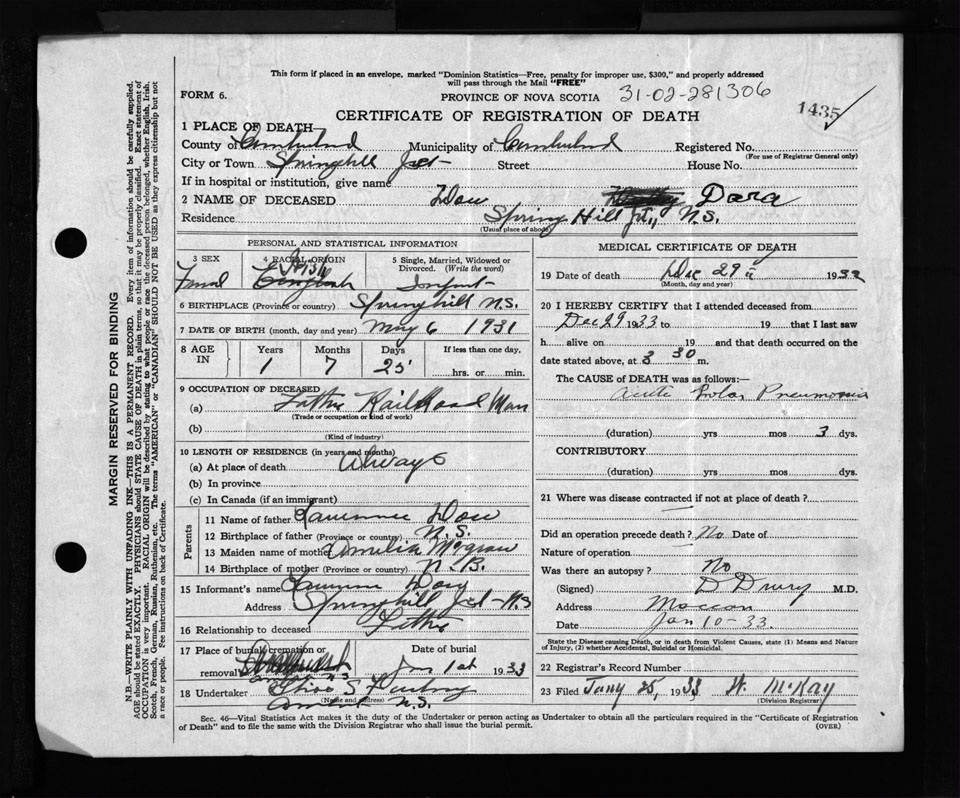 This form if placed in an envelope, marked "Dominion Statistics—Free, penalty for improper use, $300," and properly addressed
will pass through the Mail "FREE"
FORM 6.
PROVINCE OF NOVA SCOTIA 31-02-281306
1435
CERTIFICATE OF REGISTRATION OF DEATH
1 PLACE OF DEATH—
County of Cumberland Municipality of Cumberland Registered No.
(For use of Registrar General only)
City or Town Springhill Jct- Street House No.
If in hospital or institution, give name
2 NAME OF DECEASED Dow Dora
Residence Spring Hill Jct., N.S.
(Usual place of abode)
PERSONAL AND STATISTICAL INFORMATION
3 SEX 4 RACIAL ORIGIN 5 Single, Married, Widowed or Divorced. (Write the word)
Femal Irish English Infant
6 BIRTHPLACE (Province or country) Springhill N.S.
7 DATE OF BIRTH (month, day and year) May 6 1931
8 AGE IN Years Months Days If less than one day,
1 7 23 hrs. or min.
9 OCCUPATION OF DECEASED
(a) Father Rail Road Man
(Trade or occupation or kind of work)
(b)
(Kind of industry)
10 LENGTH OF RESIDENCE (in years and months)
(a) At place of death Always
(b) In province
(c) In Canada (if an immigrant)
Parents
11 Name of father Lawrence Dow
12 Birthplace of father (Province or country) N.S.
13 Maiden name of mother Amelia McGraw
14 Birthplace of mother (Province or country) N.B.
15 Informant's name Lawrence Dow
Address Springhill Jct- N.S
16 Relationship to deceased Father
17 Place of burial, cremation or removal Date of burial
Jan 1st 1933
18 Undertaker
(Name and address)
Amherst N.S.
MEDICAL CERTIFICATE OF DEATH
19 Date of death Dec 29 1932
(Month, day and year)
20 I HEREBY CERTIFY that I attended deceased from
Dec 29 1933 to 19 that I last saw
h alive on 19 and that death occurred on the
date stated above, at 3 30 m.
The CAUSE OF DEATH was as follows:—
Acute Lobar Pneumonia
(duration) yrs mos 3 dys.
CONTRIBUTORY
(duration) yrs mos dys.
21 Where was disease contracted if not at place of death?
Did an operation precede death? No Date of
Nature of operation
Was there an autopsy? No
(Signed) D Drury M.D.
Address Maccan
Date Jan 10-33.
State the Disease causing Death, or in death from Violent Causes, state (1) Means and Nature
of Injury, (2) whether Accidental, Suicidal or Homicidal.
22 Registrar's Record Number
23 Filed Jany 25, 1933 W. McKay
(Division Registrar)
Sec. 46—Vital Statistics Act makes it the duty of the Undertaker or person acting as Undertaker to obtain all the particulars required in the "Certificate of Registration
of Death" and to file the same with the Division Registrar who shall issue the burial permit. (OVER)
MARGIN RESERVED FOR BINDING
N.B.—WRITE PLAINLY WITH UNFADING INK—THIS IS A PERMANENT RECORD. Every item of information should be carefully supplied.
AGE should be stated EXACTLY. PHYSICIANS should STATE CAUSE OF DEATH in plain terms, so that it may be properly classified. Exact statement of
OCCUPATION is very important. RACIAL ORIGIN will be described by stating to what people or race the deceased person belonged, whether English, Irish,
Scotch, French, German, Russian, Ruthenian, etc. The terms "AMERICAN" or "CANADIAN" SHOULD NOT BE USED as they express citizenship but not
a race or people. See instructions on back of Certificate.